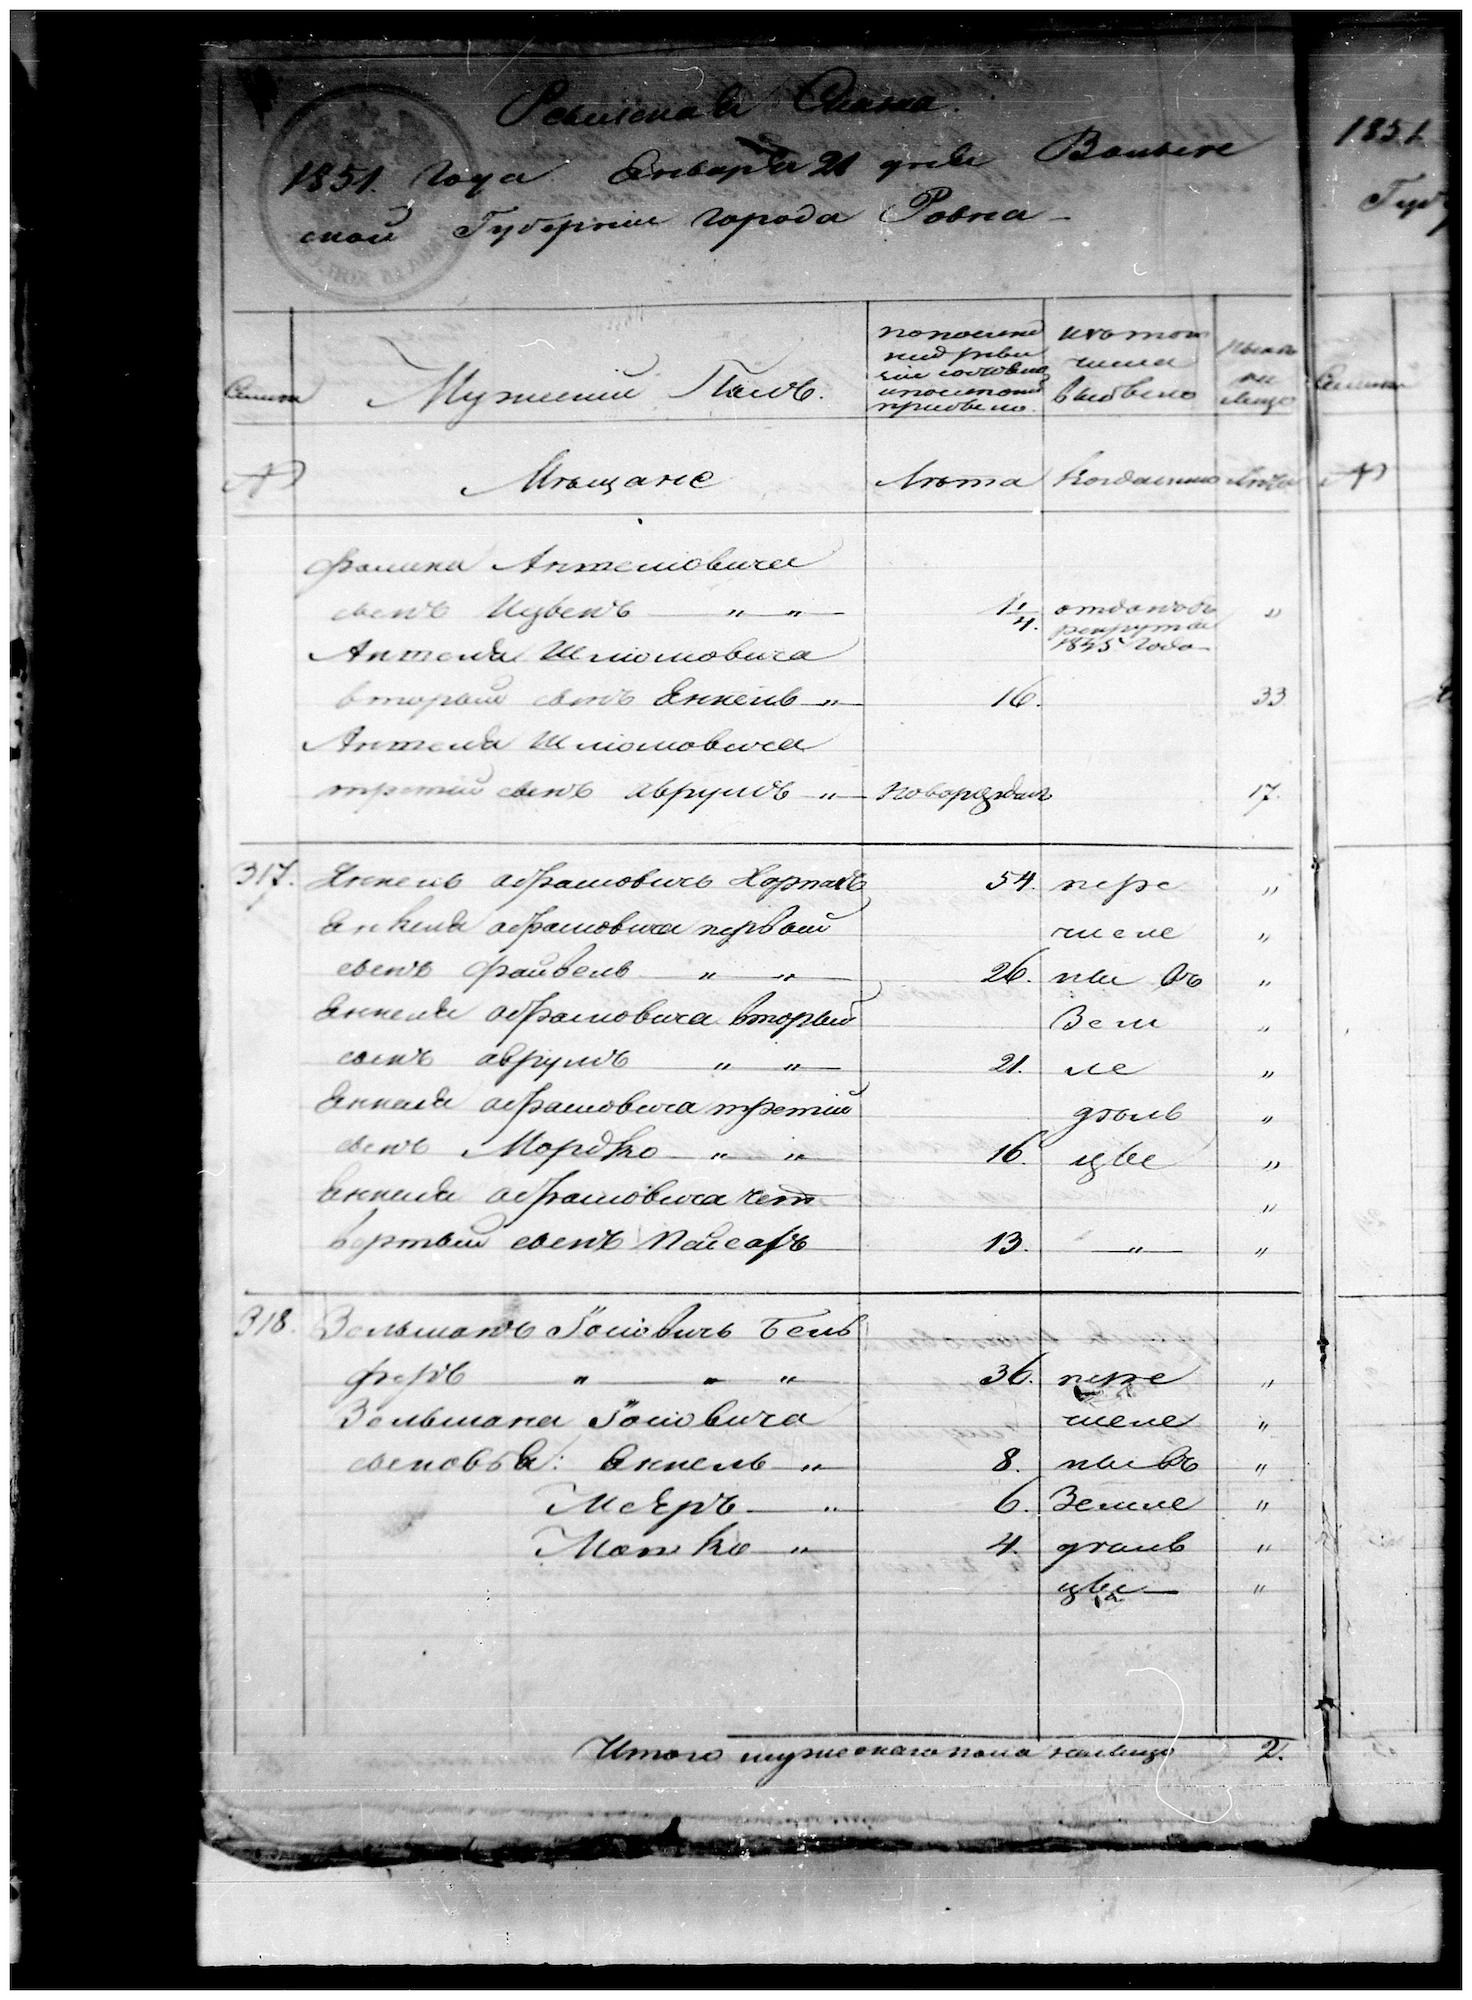 Ревизская Сказка.
1851 Года Января 21 дня Волын
ской Губернии города Ровна
Семьи Мужеский Полъ. по последней ревизии состояло и после того прибыло изъ того числа выбыло ныне на лицо
№ Мещане Лѣта Когда именно Лѣта
сынъ — " — " — 1/4. отданъ въ рекруты 1845 года "
Антеля Шлиомовича
вторый сынъ Янкель — " 16. 33
Антеля Шлиомовича
третий сынъ Аврумъ — " новорожден 17.
317. Янкель Абрамовичъ 54. пере "
Янкеля Абрамовича первый числе "
сынъ Файвель — " — " — 26. ны въ "
Янкеля Абрамовича вторый Зем "
сынъ Аврумъ — " — " — 21. ле "
Янкеля Абрамовича третий дѣль "
сынъ Мордко — " — " — 16. цы "
Янкеля Абрамовича чет "
вертый сынъ Пейсахъ 13. — " — "
318. Зельманъ Іосіовичъ Гель
феръ " — " — " 36. пере "
Зельмана Іосіовича числе "
сыновья: Янкель " 8. ны въ "
Мееръ — " 6. Земле "
Мошко " 4. дѣль "
цы — "
Итого мужескаго пола налицо 2.
1851
Губ
Семьи
№